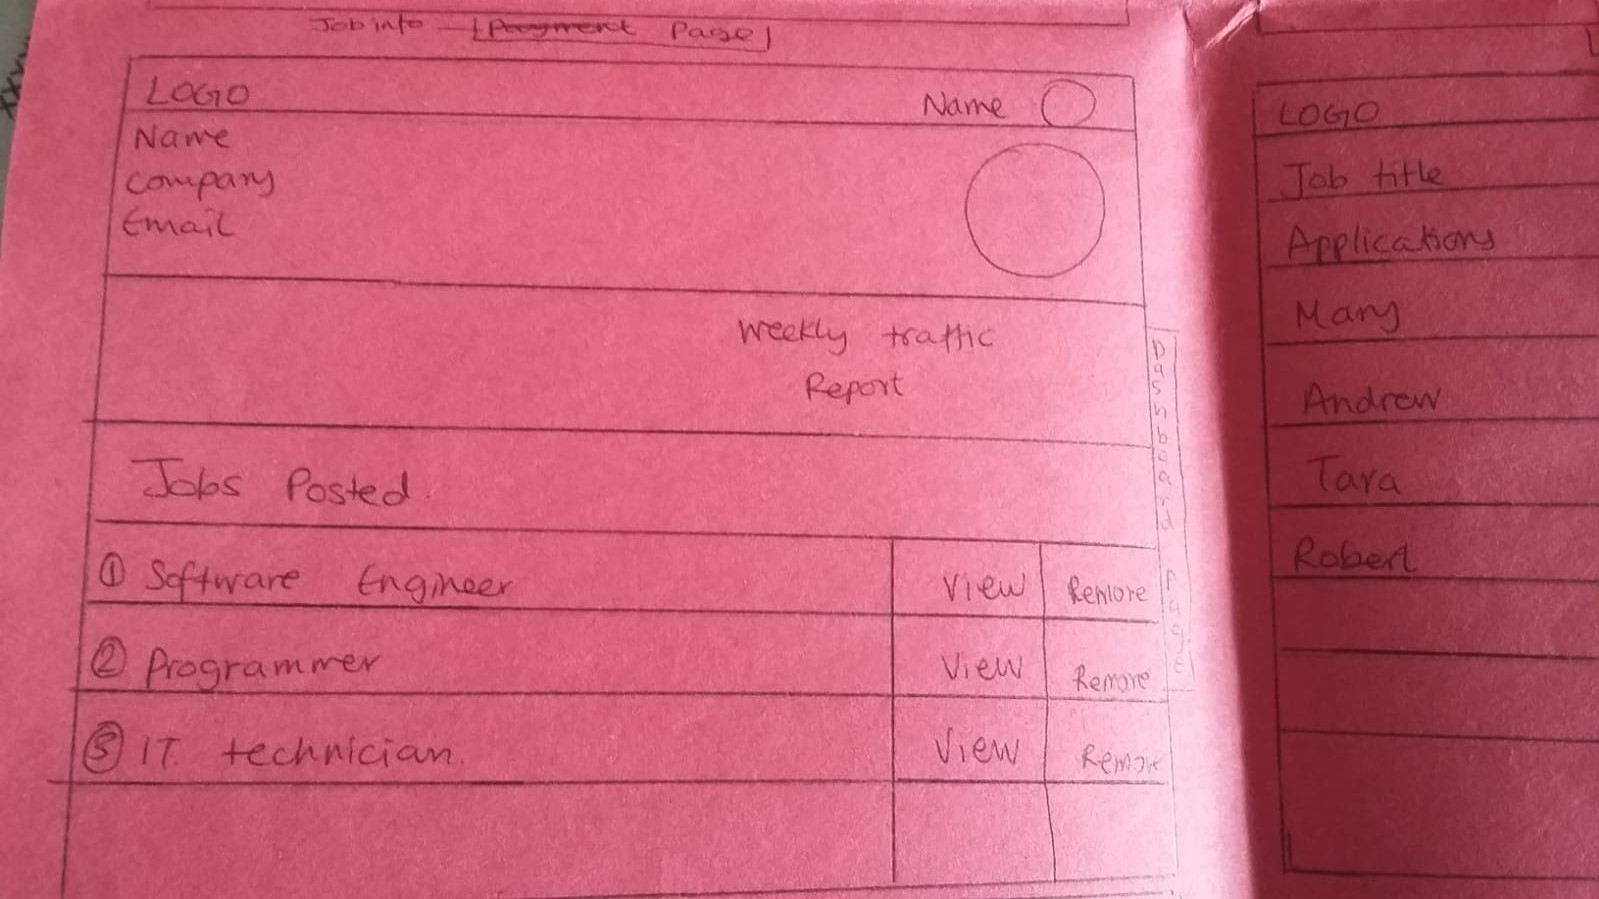 Job info [Payment Page]
LOGO Name
Name
Company
Email
Weekly traffic
Report
Jobs Posted.
① Software Engineer View Remove
② Programmer View Remove
③ IT technician. View Remove
Dashboard Page
LOGO
Job title
Applications
Mary
Andrew
Tara
Robert